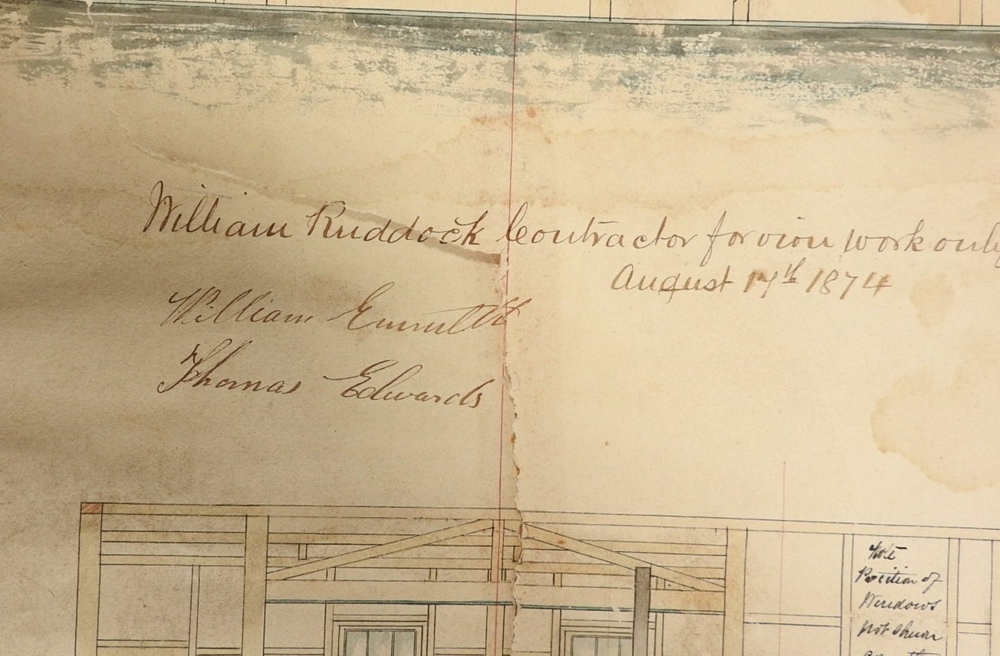 William Ruddock Contractor for iron work only
August 17th 1874
William Emmett
Thomas Edwards
Note
Position of
Windows
not shewn